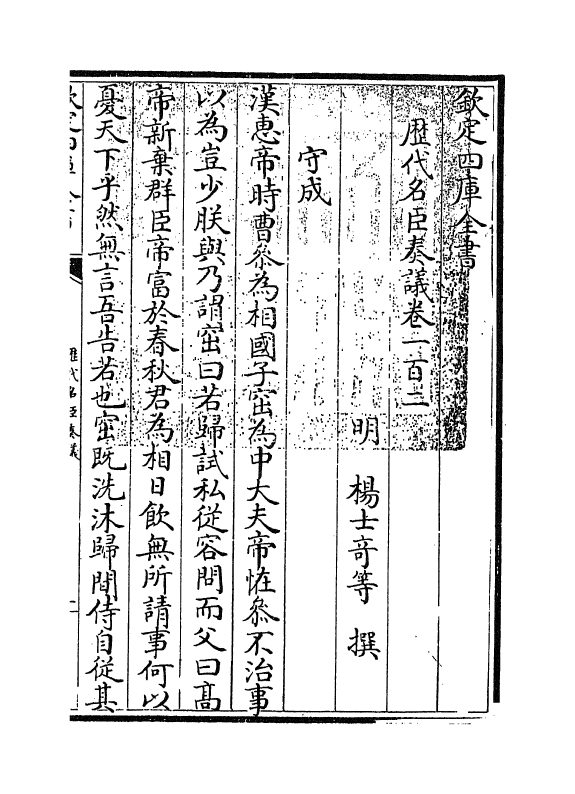 欽定四庫全書
歴代名臣奏議卷一百二
明 楊士竒等 撰
守成
漢惠帝時曹叅為相國子窋為中大夫帝怪叅不治事
以為豈少朕與乃謂窋曰若歸試私從容問而父曰髙
帝新棄群臣帝富於春秋君為相日飲無所請事何以
憂天下乎然無言吾告若也窋既洗沐歸間侍自從其
歴代名臣奏議